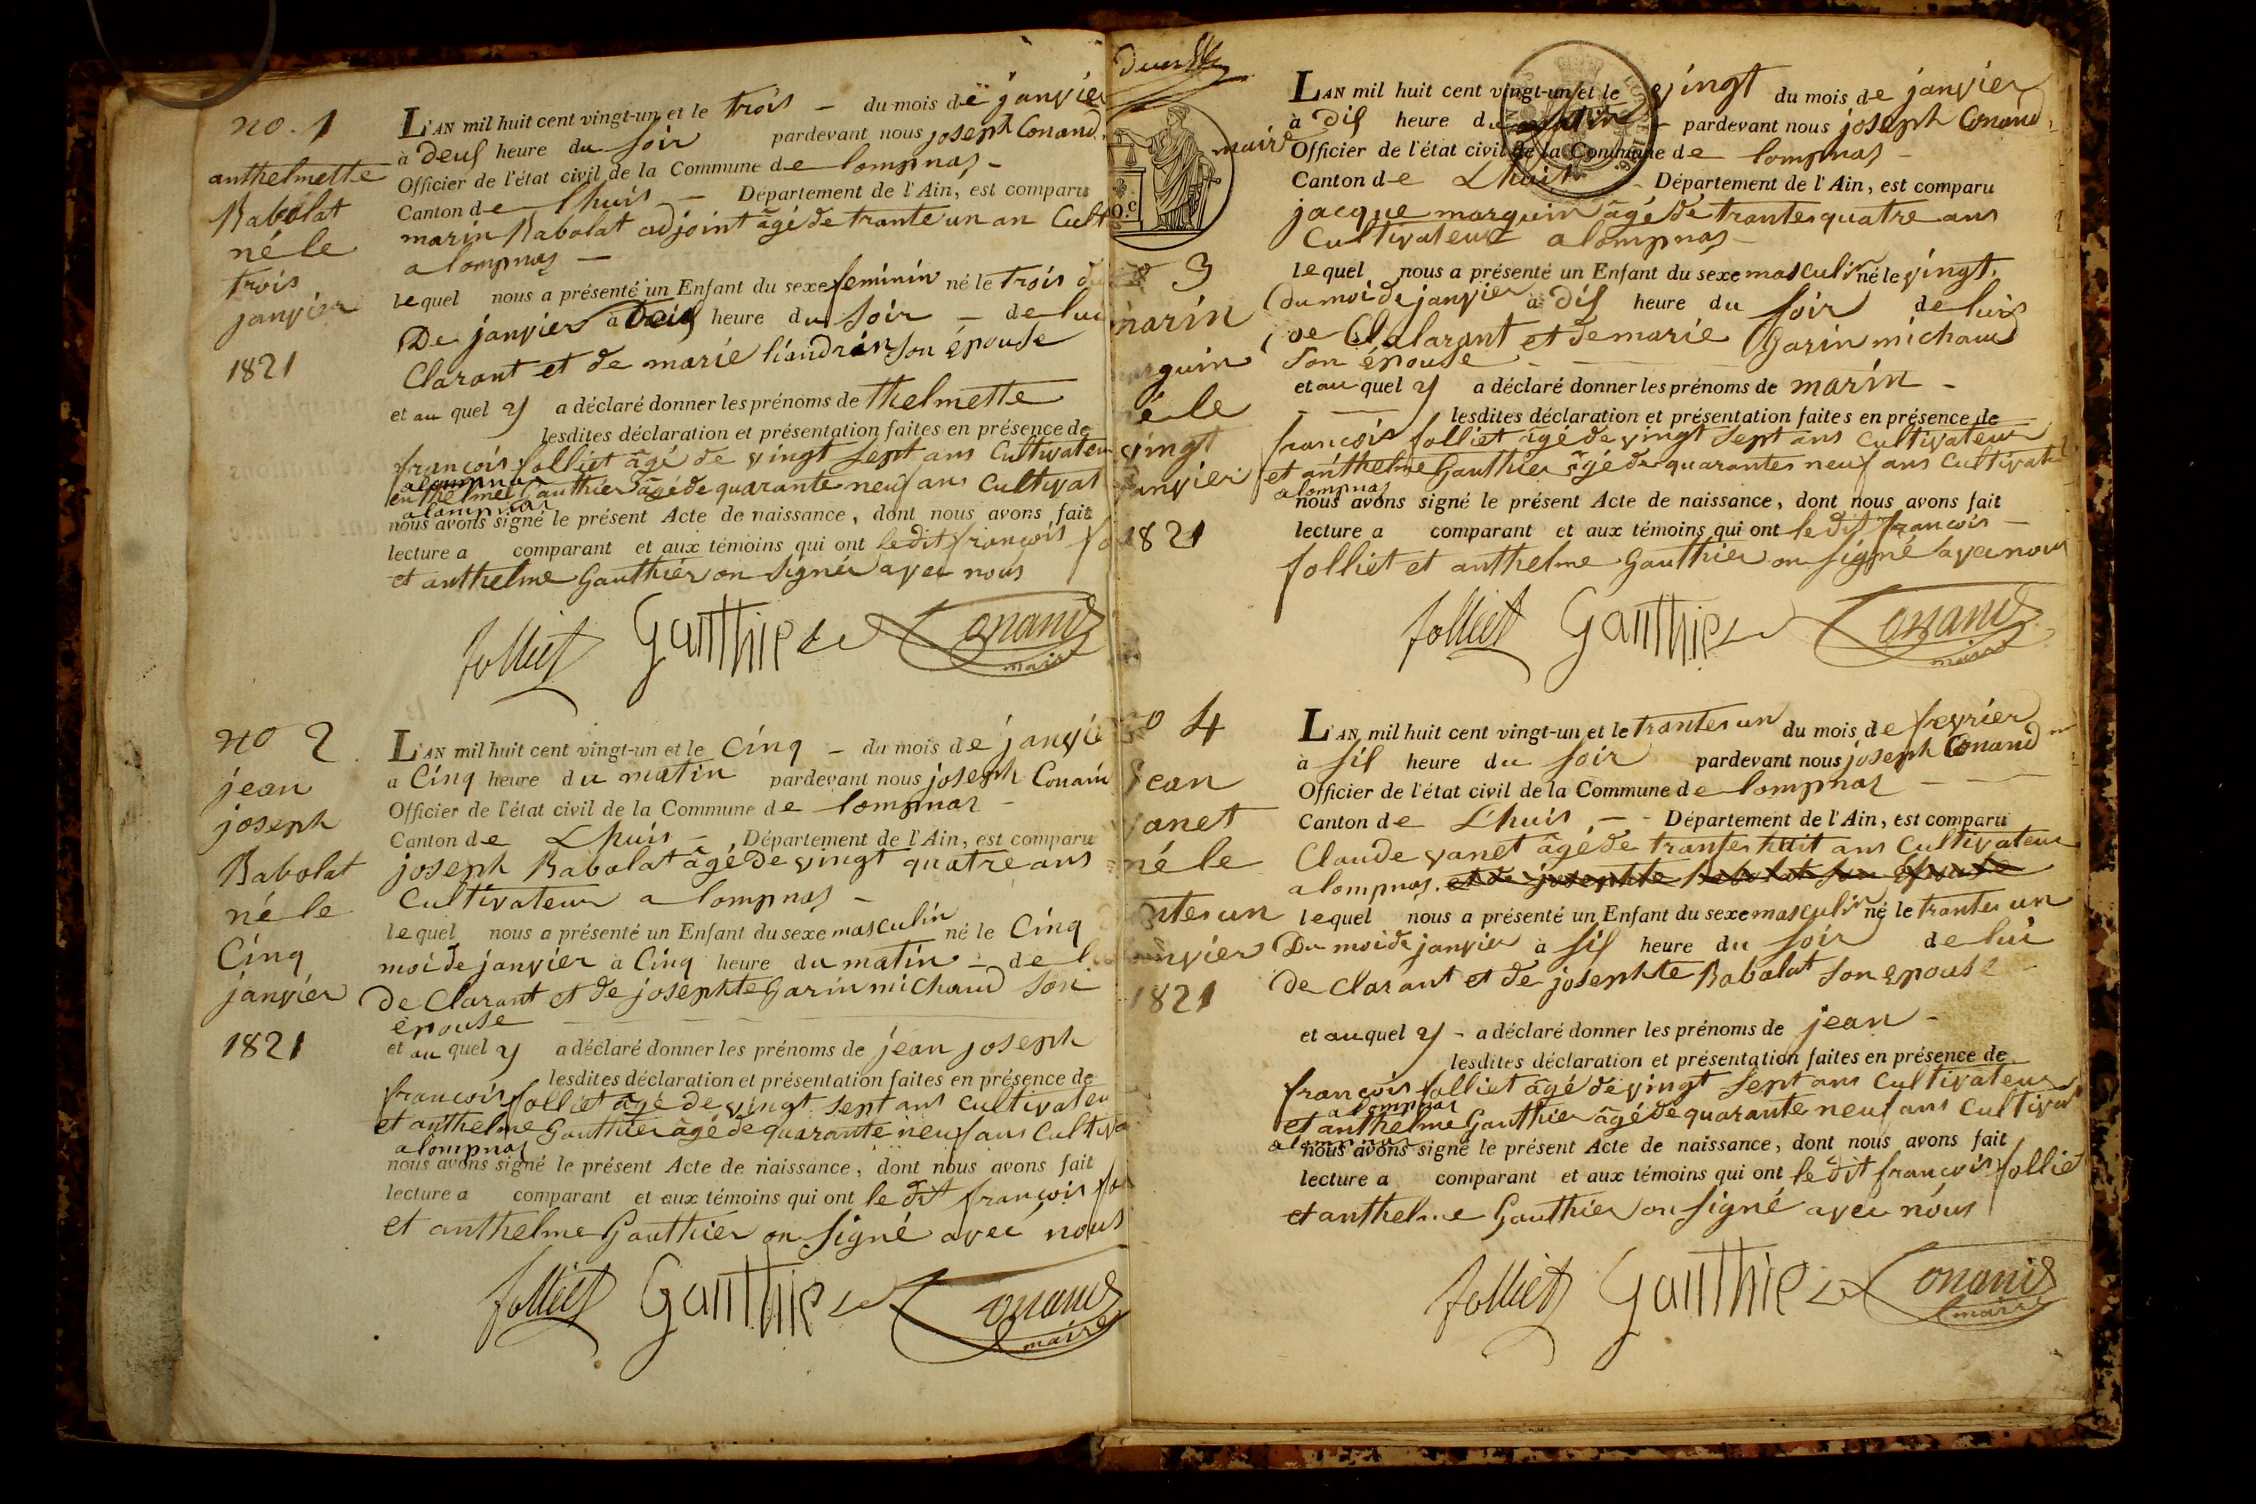 no. 1
anthelmette
Rabolat
né le
trois
janvier
1821
L'AN mil huit cent vingt-un et le trois - du mois de janvier
à deus heure du soir pardevant nous joseph Conand
Officier de l'état civil de la Commune de lompnas -
Canton de lhuis - Département de l'Ain, est comparu
marin Rabolat adjoint âgé de trante un an Cult
a lompnas -
lequel nous a présenté un Enfant du sexe feminin né le trois du
De janvier à heure du soir - de lui
Clarant et de marie liandrin son épouse
et au quel y a déclaré donner les prénoms de thelmette
lesdites déclaration et présentation faites en présence de
françois folliet âgé de vingt sept ans Cultivateu
alompnas
enthelme Gauthier âgé de quarante neuf ans Cultivat
a lompnas
nous avons signé le présent Acte de naissance, dont nous avons fait
lecture a comparant et aux témoins qui ont le dit françois fo
et anthelme Gauthier on Signé avec nous
folliet Gauthier Conand
maire
no 2
jean
joseph
Rabolat
né le
Cinq
janvier
1821
L'AN mil huit cent vingt-un et le Cinq - du mois de janvie
a Cinq heure du matin pardevant nous joseph Conand
Officier de l'état civil de la Commune de lompnas -
Canton de Lhuis - Département de l'Ain, est comparu
joseph Rabolat âgé de vingt quatre ans
Cultivateur a lompnas -
lequel nous a présenté un Enfant du sexe masculin né le Cinq
moi de janvier à Cinq heure du matin - de l
de Clarant et de josephte Garin michaud Son
épouse
et au quel y a déclaré donner les prénoms de jean joseph
lesdites déclaration et présentation faites en présence de
francois folliet âgé de vingt sept ans Cultivateu
et anthelme Gauthier âgé de quarante neuf ans Cultiva
a lompnas
nous avons signé le présent Acte de naissance, dont nous avons fait
lecture a comparant et aux témoins qui ont le dit françois fo
et anthelme Gauthier on Signé avec nous
folliet Gauthier Conand
maire
maire
3
marin
guin
né le
vingt
janvier
1821
L'AN mil huit cent vingt-un et le vingt du mois de janvier
à Dis heure du - pardevant nous joseph Conand
Officier de l'état civil de la Commune de lompnas -
Canton de Lhuis - Département de l'Ain, est comparu
jacque marguin âgé de trante quatre ans
Cultivateur a lompnas -
lequel nous a présenté un Enfant du sexe masculin né le vingt
du moi de janvier à Dis heure du Soir de lui
de Clalarant et de marie Garin michaud
Son épouse
et au quel y a déclaré donner les prénoms de marin -
lesdites déclaration et présentation faites en présence de
françois folliet âgé de vingt Sept ans Cultivateur
et anthelme Gauthier âgé de quarante neuf ans Cultivate
a lompnas
nous avons signé le présent Acte de naissance, dont nous avons fait
lecture a comparant et aux témoins qui ont le dit françois -
folliet et anthelme Gauthier on Signé avec nous
folliet Gauthier Conand
maire
no 4
jean
vanet
né le
antes un
janvier
1821
L'AN mil huit cent vingt-un et le trantes un du mois de fevrier
à sis heure du soir pardevant nous joseph Conand
Officier de l'état civil de la Commune de lompnas
Canton de Lhuis - - Département de l'Ain, est comparu
Claude vanet âgé de trantes huit ans Cultivateur
a lompnas. et de josephte Rabolat son épouse
lequel nous a présenté un Enfant du sexe masculin né le trantes un
Du moi de janvier à sis heure du Soir de lui
De Clarant et de josephte Rabolat Son epouse
et au quel y - a déclaré donner les prénoms de jean -
lesdites déclaration et présentation faites en présence de
françois folliet âgé de vingt Sept ans Cultivateur
a lompnas
et anthelme Gauthier âgé de quarante neuf ans Cultivat
a lompnas
nous avons signé le présent Acte de naissance, dont nous avons fait
lecture a comparant et aux témoins qui ont le dit françois folliet
et anthelme Gauthier on Signé avec nous
folliet Gauthier Conand
maire